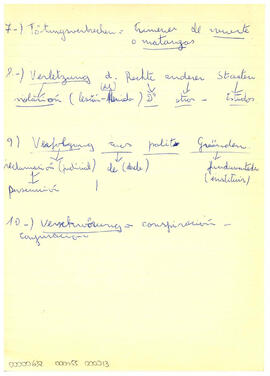 7-) Tötungsverbrechen = Crímenes de muerte
o matanzas
8-) Verletzung d. Rechte anderer Staaten
violación (lesión-herida) Ds otros - Estados
9) Verfolgung aus polit. Gründen
reclamación (judicial) de (desde) fundamentado
persecución (instituir)
10-) Verschwörung = conspiración -
conjuración
00000632 000155 000013